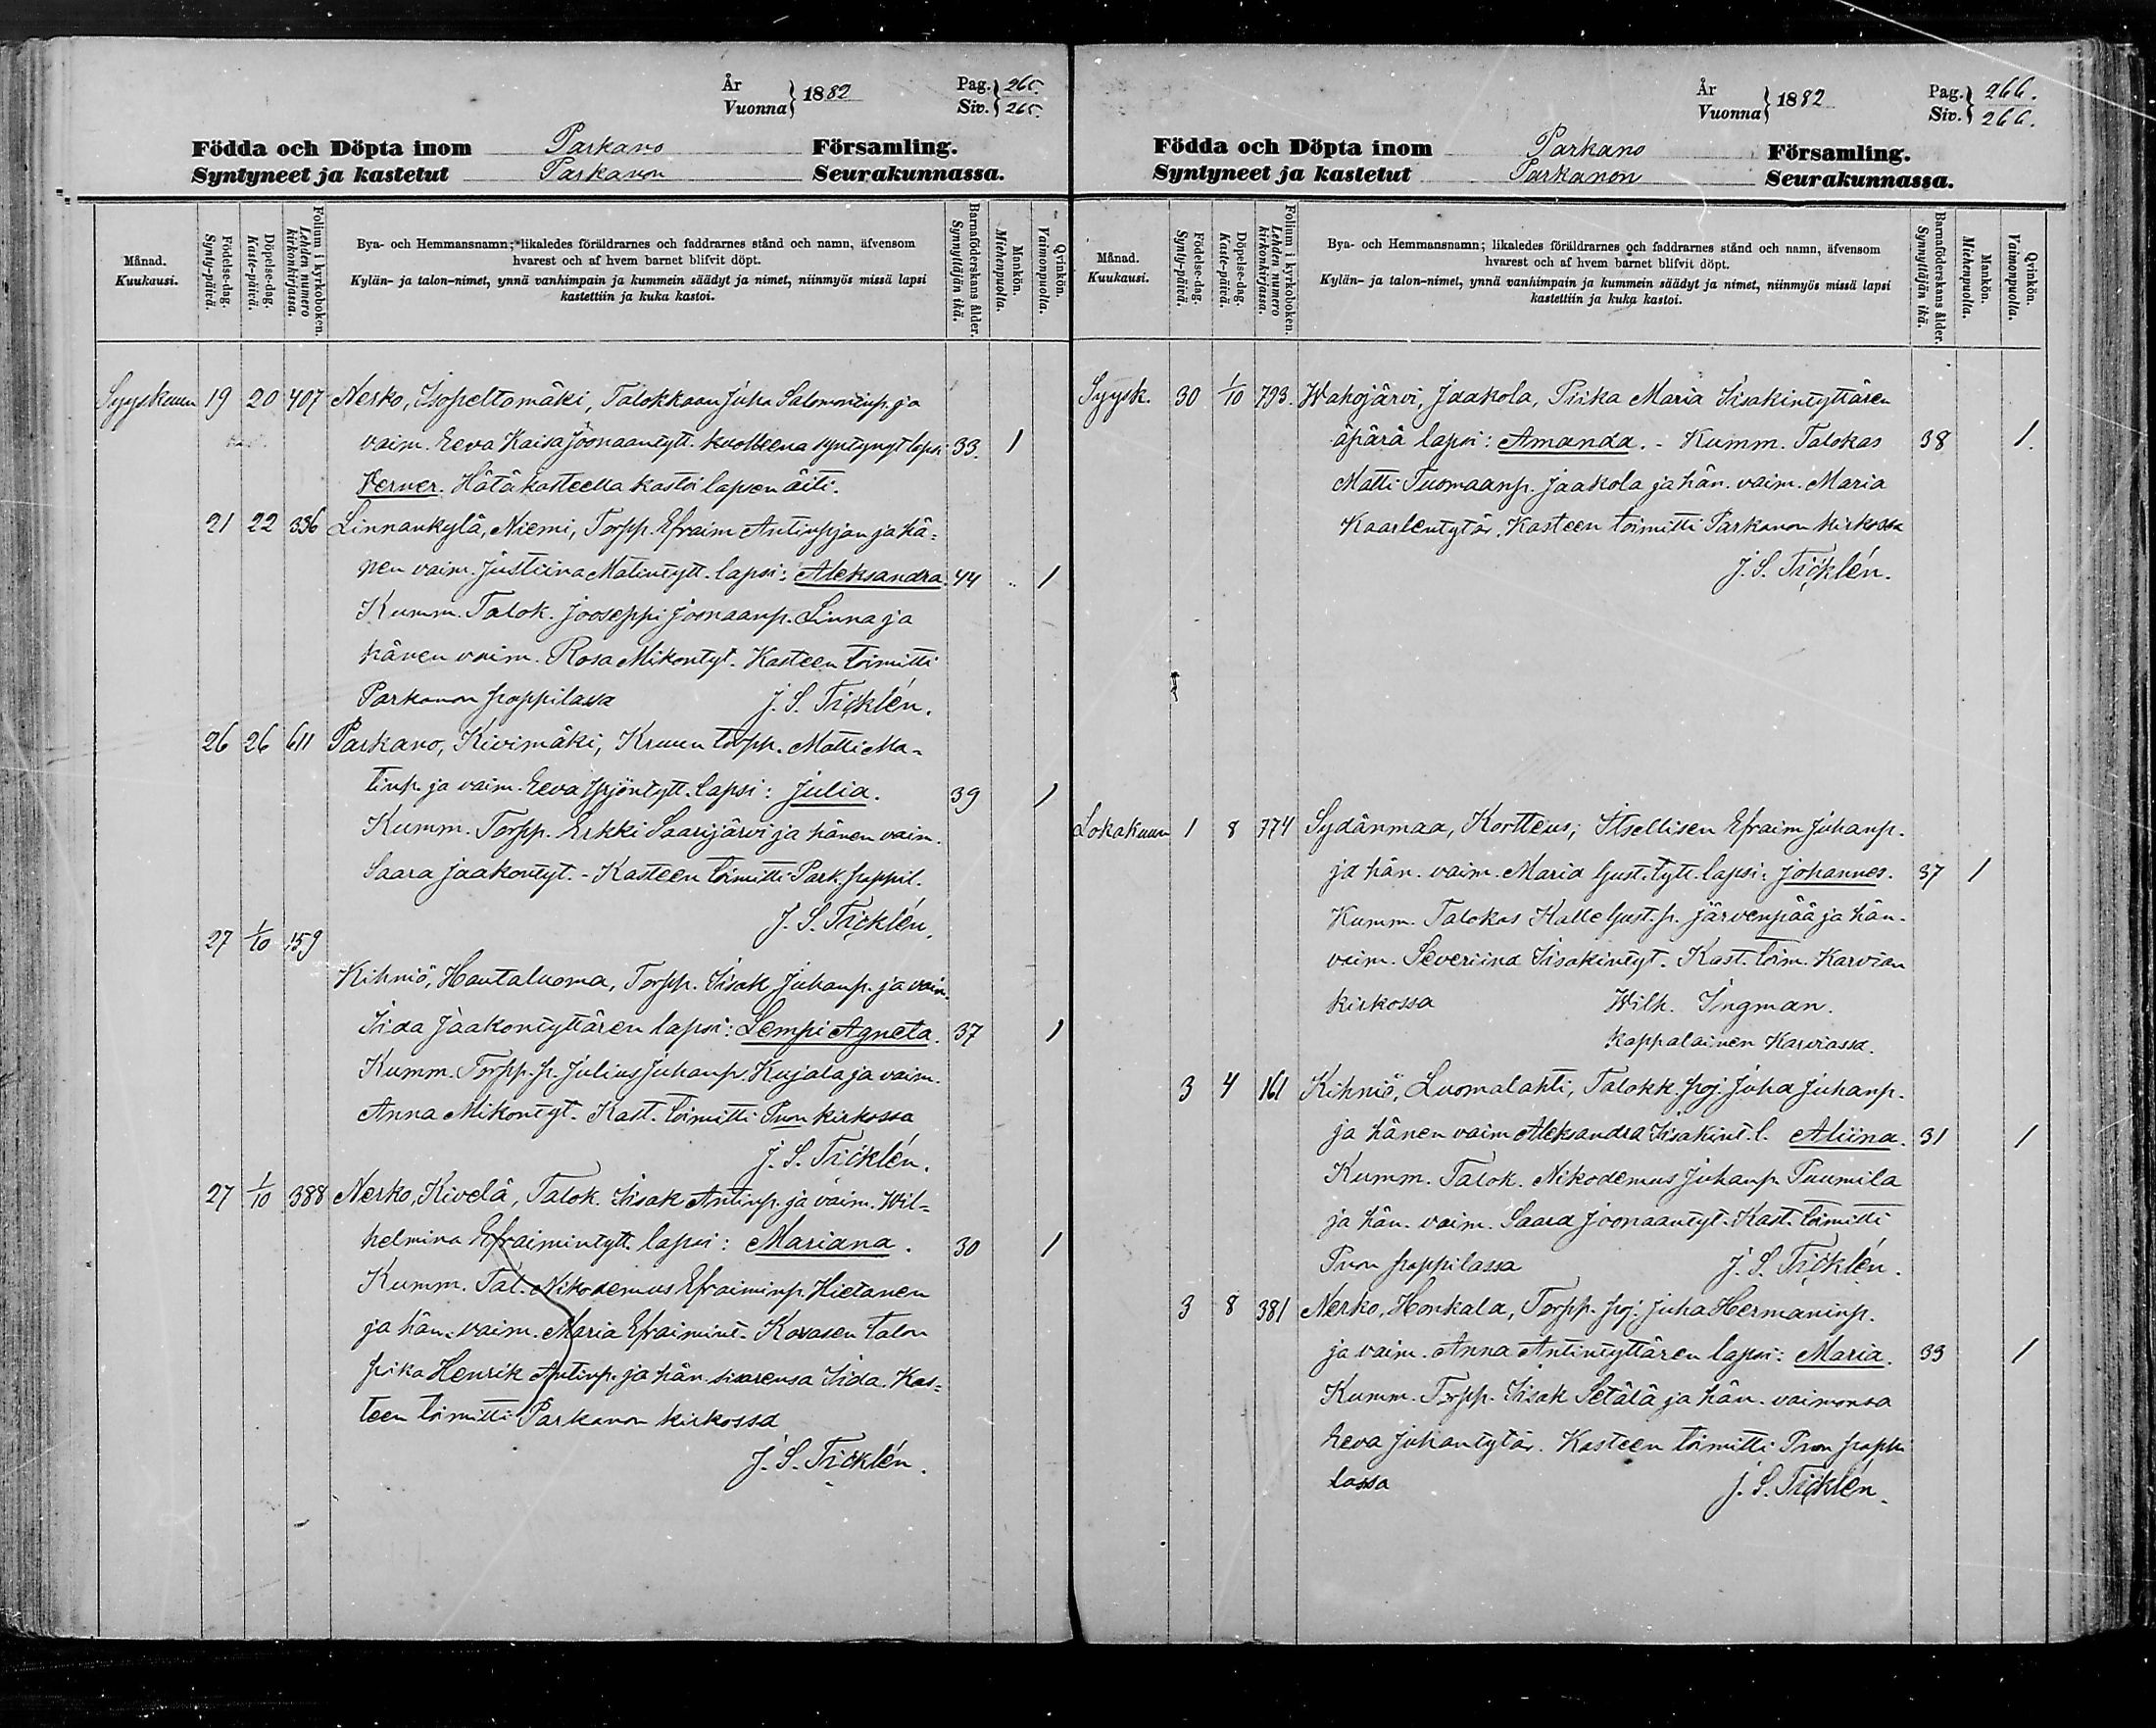 År
Vuonna } 1882
Pag. } 265.
Siv. } 265.
Födda och Döpta inom Parkano Församling.
Syntyneet ja kastetut Parkanon Seurakunnassa.
Månad.
Kuukausi.
Födelse-dag.
Synty-päivä.
Döpelse-dag.
Kaste-päivä.
Folium i kyrkoboken.
Lehden numero
kirkonkirjassa.
Bya- och Hemmansnamn; likaledes föräldrarnes och faddrarnes stånd och namn, äfvensom
hvarest och af hvem barnet blifvit döpt.
Kylän- ja talon-nimet, ynnä vanhimpain ja kummein säädyt ja nimet, niinmyös missä lapsi
kastettiin ja kuka kastoi.
Barnaföderskans ålder.
Synnyttäjän ikä.
Mankön.
Miehenpuolla.
Qvinkön.
Vaimonpuolla.
Syyskuun 19 20 407 Nerko, Isopeltomäki, Talokkaan Juha Salomoninp. ja
vaim. Eeva Kaisa Joonaantytt. kuolleena syntynyt lapsi 33. 1
Verner. Hätäkasteella kastoi lapsen äiti.
21 22 336 Linnankylä, Niemi, Torpp. Efraim Antinpojan ja hä=
nen vaim. Justiina Matintytt. lapsi: Aleksandra. 44 1
Kumm. Talok. Jooseppi Joonaanp. Linna ja
hänen vaim. Rosa Mikontyt. Kasteen toimitti
Parkanon pappilassa J. S. Ticklén.
26 26 611 Parkano, Kivimäki, Kruun torpp. Matti Ma-
tinp. ja vaim. Eeva Yrjöntytt. lapsi: Julia. 39 1
Kumm. Torpp. Erkki Saarijärvi ja hänen vaim.
Saara Jaakontyt. - Kasteen toimitti Park. pappil.
J. S. Ticklén.
27 1/10 159
Kihniö, Hautaluoma, Torpp. Iisak Juhanp. ja vaim.
Iida Jaakontyttären lapsi: Lempi Agneta. 37 1
Kumm. Torpp. p. Julius Juhanp. Kujala ja vaim.
Anna Mikontyt. Kast. toimitti Pnon kirkossa
J. S. Ticklén.
27 1/10 388 Nerko, Kivelä, Talok. Iisak Antinp. ja vaim. Wil=
helmina Efraimintytt. lapsi: Mariana. 30 1
Kumm. Tal. Nikodemus Efraiminp. Hietanen
ja hän. vaim. Maria Efraimint. Kovasen talon
piika Henrik Antinp. ja hän sisarensa Iida. Kas=
teen toimitti Parkanon kirkossa
J. S. Ticklén.
År
Vuonna } 1882
Pag. } 266.
Siv. } 266.
Födda och Döpta inom Parkano Församling.
Syntyneet ja kastetut Parkanon Seurakunnassa.
Månad.
Kuukausi.
Födelse-dag.
Synty-päivä.
Döpelse-dag.
Kaste-päivä.
Folium i kyrkoboken.
Lehden numero
kirkonkirjassa.
Bya- och Hemmansnamn; likaledes föräldrarnes och faddrarnes stånd och namn, äfvensom
hvarest och af hvem barnet blifvit döpt.
Kylän- ja talon-nimet, ynnä vanhimpain ja kummein säädyt ja nimet, niinmyös missä lapsi
kastettiin ja kuka kastoi.
Barnaföderskans ålder.
Synnyttäjän ikä.
Mankön.
Miehenpuolla.
Qvinkön.
Vaimonpuolla.
Syysk. 30 1/10 793. Wahojärvi, Jaakola, Piika Maria Iisakintyttären
äpärä lapsi: Amanda. - Kumm. Talokas 38 1.
Matti Tuomaanp. Jaakola ja hän. vaim. Maria
Kaarlentytär. Kasteen toimitti Parkanon kirkossa
J. S. Ticklén.
Lokakuun 1 8 774 Sydänmaa, Kortteus, Itsellisen Efraim Juhanp.
ja hän. vaim. Maria Gust. tytt. lapsi: Johannes. 37 1
Kumm. Talokas Kalle Gust. p. Järvenpää ja hän.
vaim. Severiina Iisakintyt. Kast. toim. Karvian
kirkossa Wilh. Ingman.
kappalainen Karviassa.
3 4 161 Kihniö, Luomalahti, Talokk. poj. Juha Juhanp.
ja hänen vaim Aleksandra Iisakint. l. Aliina. 31 1
Kumm. Talok. Nikodemus Juhanp. Puumila
ja hän. vaim. Saara Joonaantyt. Kast. toimitti
Pnon pappilassa J. S. Ticklén.
3 8 381 Nerko, Honkala, Torpp. poj. Juha Hermaninp.
ja vaim. Anna Antintyttären lapsi: Maria. 33 1
Kumm. Torpp. Iisak Setälä ja hän. vaimonsa
Eeva Juhantytär. Kasteen toimitti Pnon pappi
lassa J. S. Ticklén.